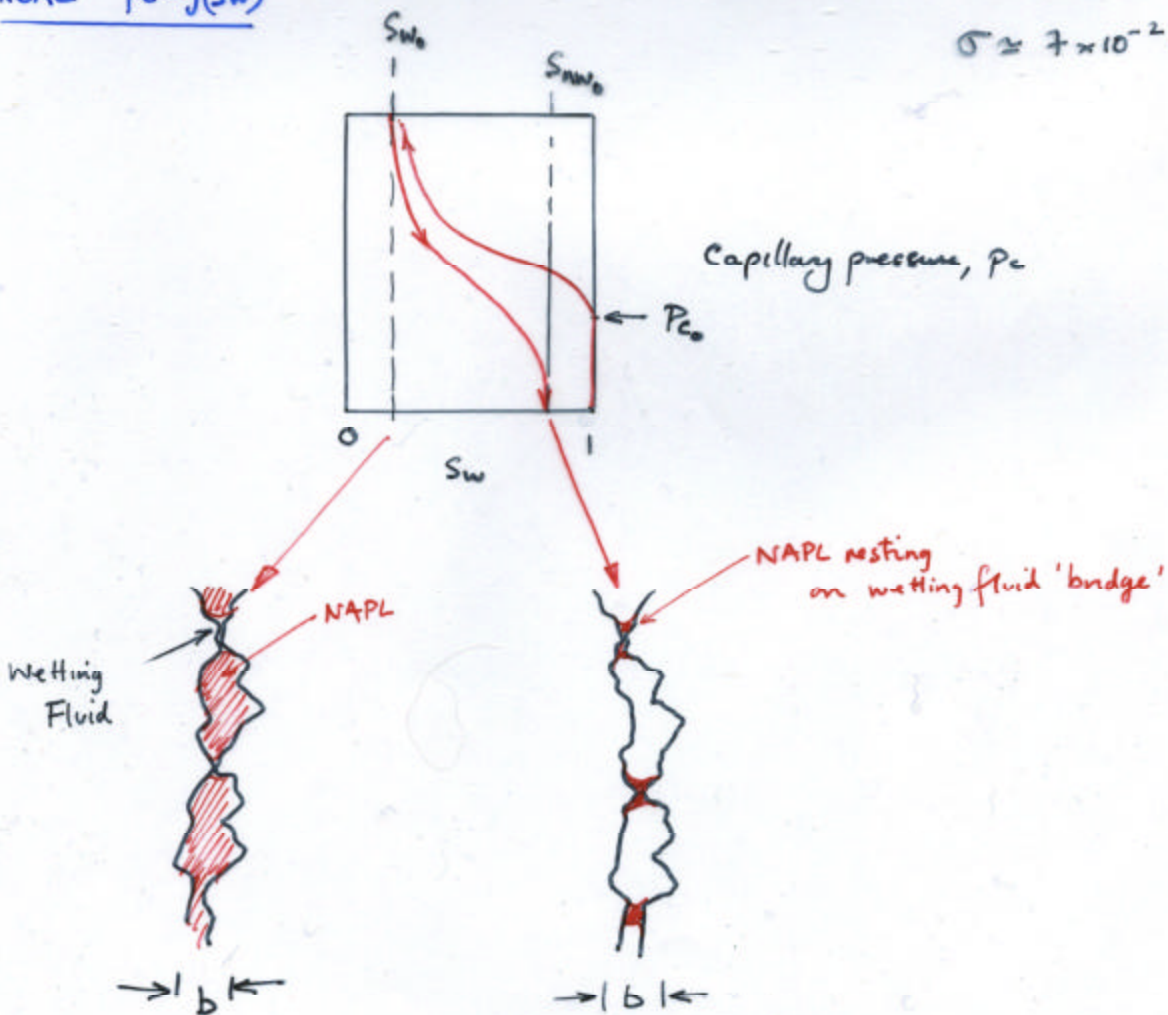 σ ≃ 7 × 10⁻²
Sw₀
Snw₀
Capillary pressure, Pc
Pc₀
0
1
Sw
NAPL resting
on wetting fluid 'bridge'
NAPL
Wetting
Fluid
b
b